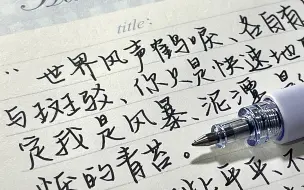 title:
“世界风声鹤唳、各自有
与斑驳、你只是快速地
定我是风暴、泥潭、是
的青苔。
平平、不